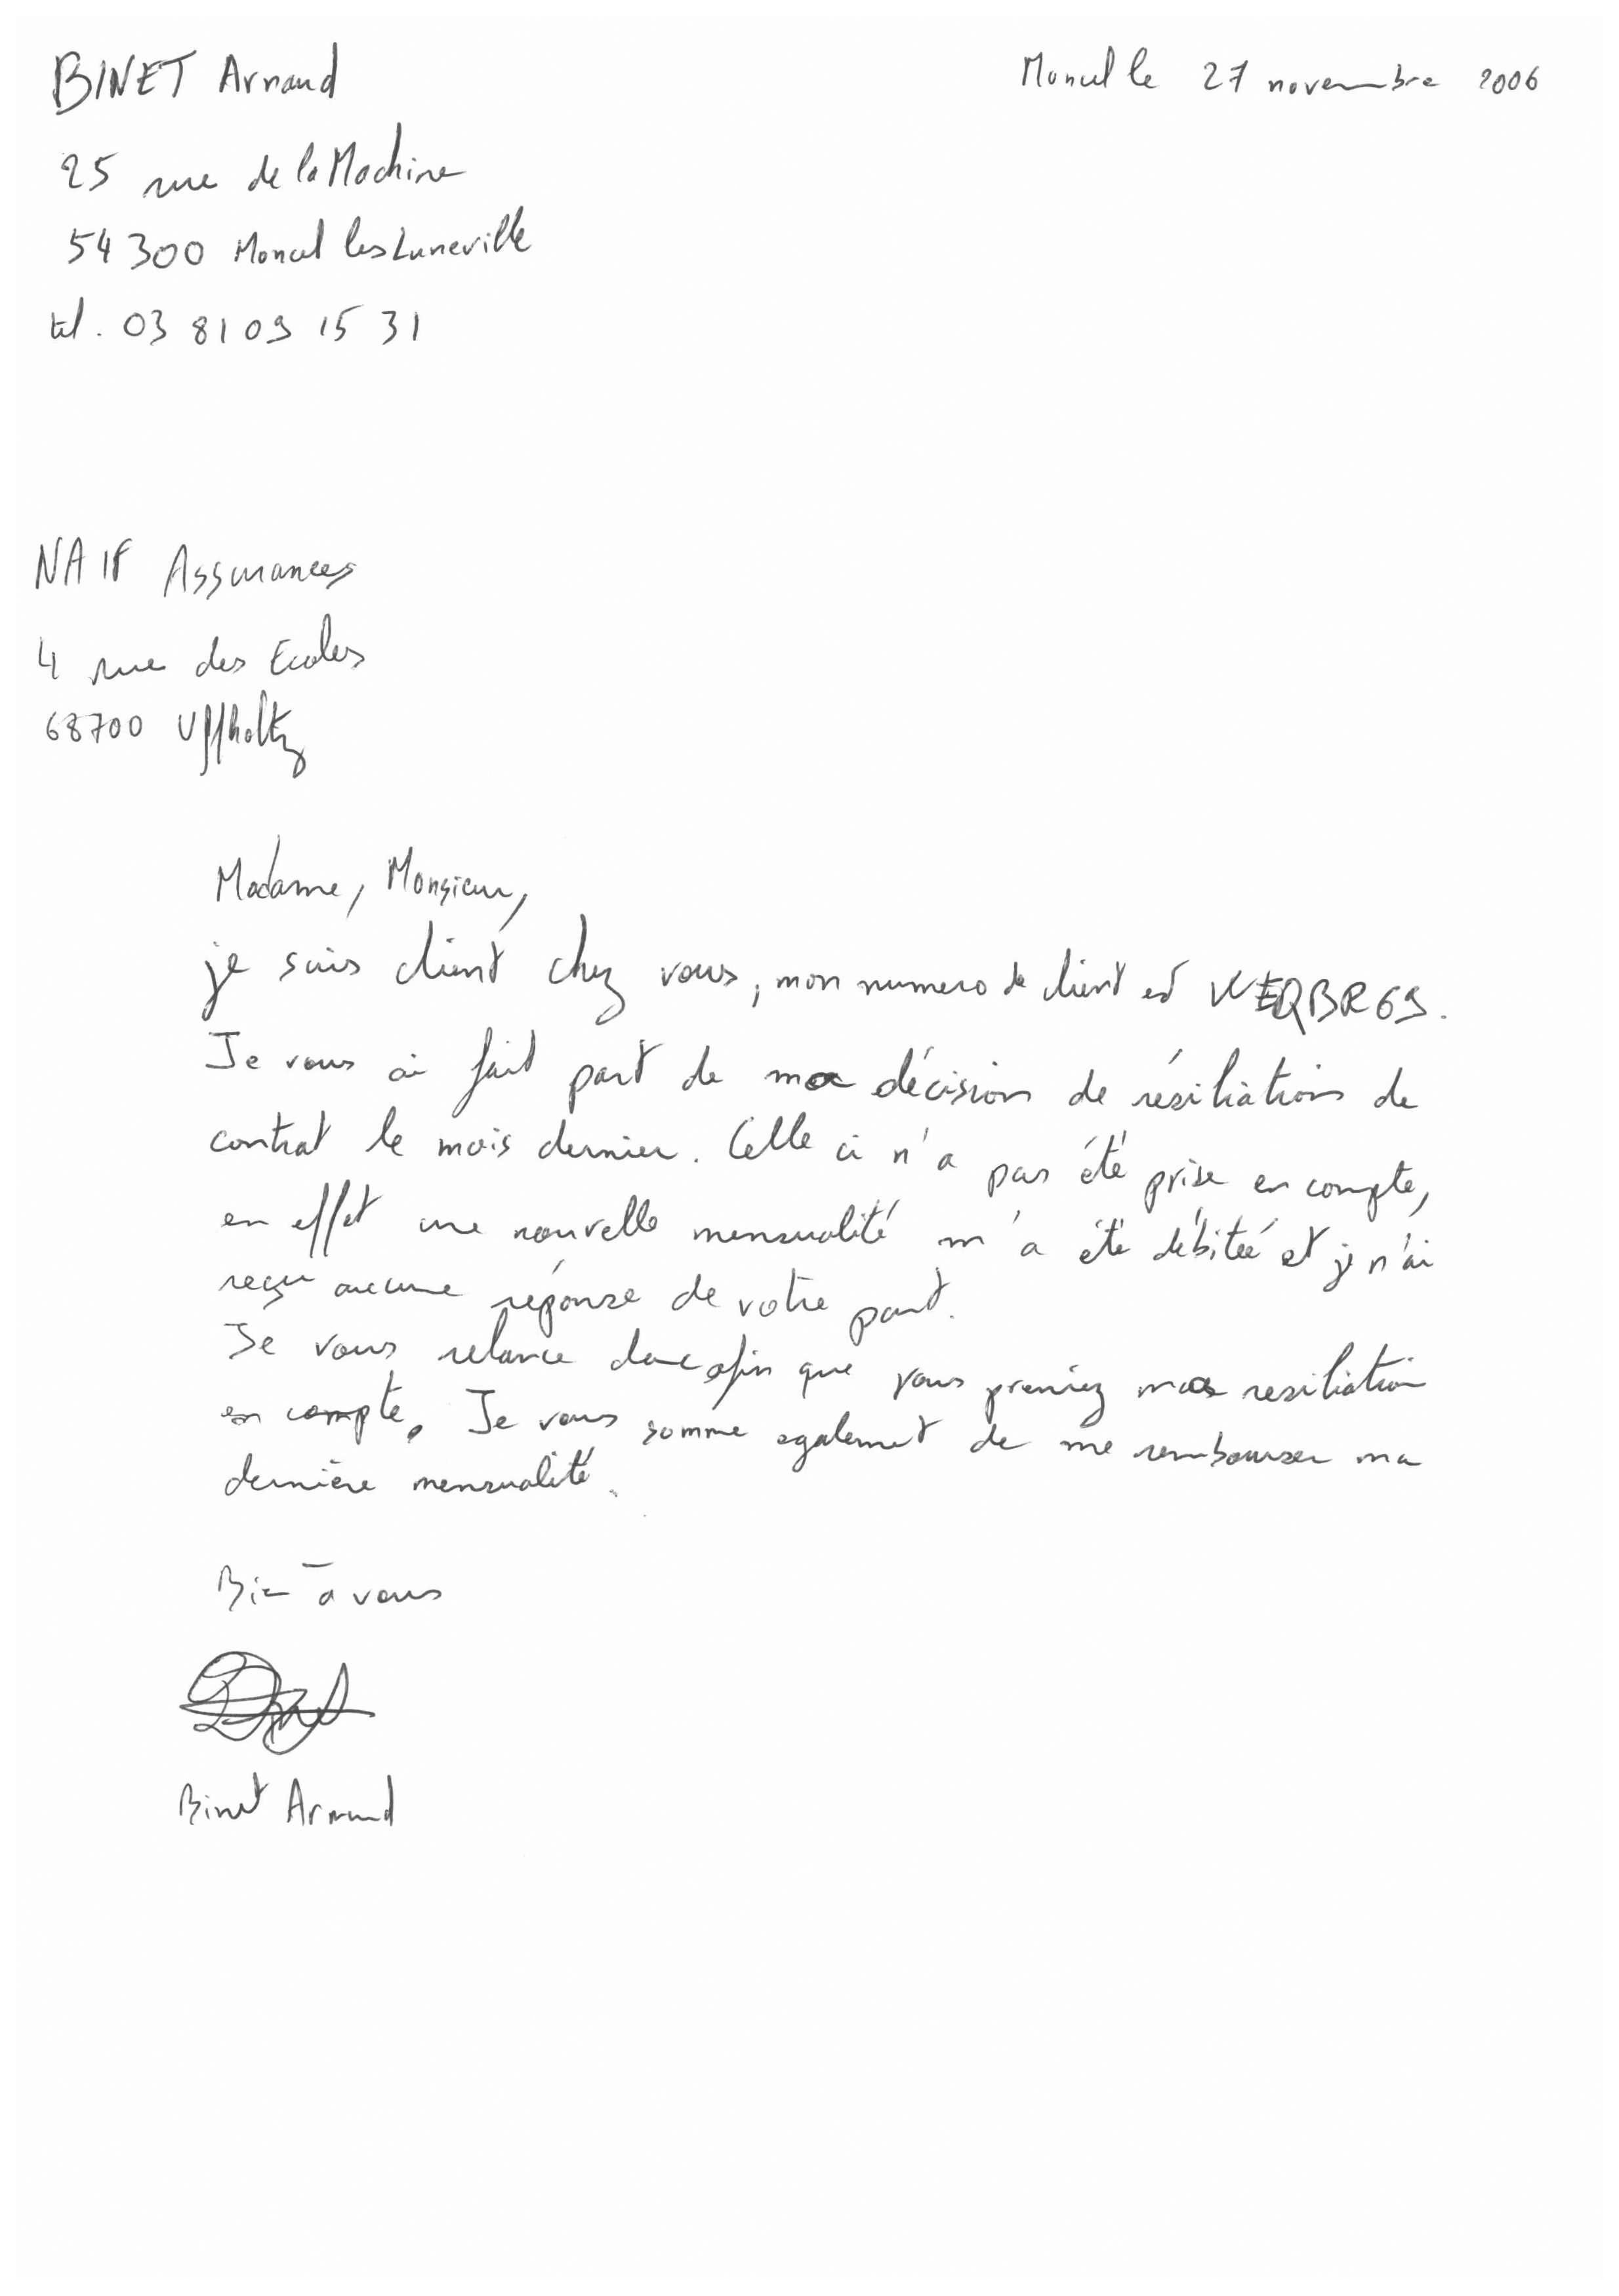 BINET Arnaud
Moncel le 27 novembre 2006
25 rue de la Machine
54300 Moncel les Luneville
tel. 03 81 09 15 31
NAIF Assurances
4 rue des Ecoles
68700 Uffholtz
Madame, Monsieur,
je suis client chez vous, mon numero de client est WEQBR69.
Je vous ai fait part de ma décision de résiliation de
contrat le mois dernier. Celle ci n'a pas été prise en compte,
en effet une nouvelle mensualité m'a été débitée et je n'ai
reçu aucune réponse de votre part.
Je vous relance donc afin que vous preniez ma resiliation
en compte. Je vous somme egalement de me rembourser ma
dernière mensualité.
Bien à vous
Binet Arnaud